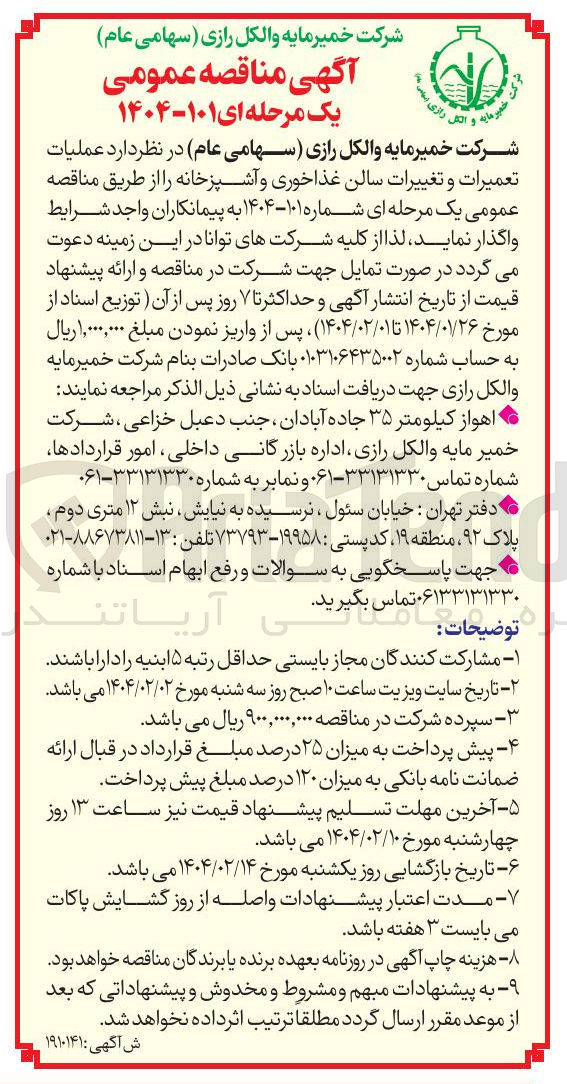 شرکت خمیرمایه والکل رازی (سهامی عام)
آگهی مناقصه عمومی
یک مرحله ای ۱۰۱-۱۴۰۴
شرکت خمیرمایه و الکل رازی (سهامی عام)
شرکت خمیرمایه والکل رازی (سهامی عام) در نظر دارد عملیات
تعمیرات و تغییرات سالن غذاخوری و آشپزخانه را از طریق مناقصه
عمومی یک مرحله ای شماره ۱۰۱-۱۴۰۴ به پیمانکاران واجد شرایط
واگذار نماید، لذا از کلیه شرکت های توانا در این زمینه دعوت
می گردد در صورت تمایل جهت شرکت در مناقصه و ارائه پیشنهاد
قیمت از تاریخ انتشار آگهی و حداکثر تا ۷ روز پس از آن ( توزیع اسناد از
مورخ ۱۴۰۴/۰۱/۲۶ تا ۱۴۰۴/۰۲/۰۱) ، پس از واریز نمودن مبلغ ۱,۰۰۰,۰۰۰ ریال
به حساب شماره ۰۱۰۳۱۰۶۴۳۵۰۰۲ بانک صادرات بنام شرکت خمیرمایه
والکل رازی جهت دریافت اسناد به نشانی ذیل الذکر مراجعه نمایند:
اهواز کیلومتر ۳۵ جاده آبادان ، جنب دعبل خزاعی ، شرکت
خمیر مایه والکل رازی ، اداره بازرگانی داخلی ، امور قراردادها،
شماره تماس ۳۳۱۳۱۳۳۰-۰۶۱ و نمابر به شماره ۳۳۱۳۱۳۳۰-۰۶۱
دفتر تهران : خیابان سئول ، نرسیده به نیایش، نبش ۱۲ متری دوم ،
پلاک ۹۲، منطقه ۱۹، کدپستی : ۱۹۹۵۸-۷۳۷۹۳ تلفن : ۱۳-۸۸۶۷۳۸۱۱-۰۲۱
جهت پاسخگویی به سوالات و رفع ابهام اسناد با شماره
۰۶۱۳۳۱۳۱۳۳۰ تماس بگیر ید.
توضیحات :
۱- مشارکت کنندگان مجاز بایستی حداقل رتبه ۵ ابنیه را دارا باشند.
۲- تاریخ سایت ویزیت ساعت ۱۰ صبح روز سه شنبه مورخ ۱۴۰۴/۰۲/۰۲ می باشد.
۳- سپرده شرکت در مناقصه ۹۰۰,۰۰۰,۰۰۰ ریال می باشد.
۴- پیش پرداخت به میزان ۲۵ درصد مبلغ قرارداد در قبال ارائه
ضمانت نامه بانکی به میزان ۱۲۰ درصد مبلغ پیش پرداخت.
۵- آخرین مهلت تسلیم پیشنهاد قیمت نیز ساعت ۱۳ روز
چهارشنبه مورخ ۱۴۰۴/۰۲/۱۰ می باشد.
۶- تاریخ بازگشایی روز یکشنبه مورخ ۱۴۰۴/۰۲/۱۴ می باشد.
۷- مدت اعتبار پیشنهادات واصله از روز گشایش پاکات
می بایست ۳ هفته باشد.
۸- هزینه چاپ آگهی در روزنامه بعهده برنده یا برندگان مناقصه خواهد بود.
۹- به پیشنهادات مبهم و مشروط و مخدوش و پیشنهاداتی که بعد
از موعد مقرر ارسال گردد مطلقا ترتیب اثر داده نخواهد شد.
ش آگهی : ۱۹۱۰۱۴۱